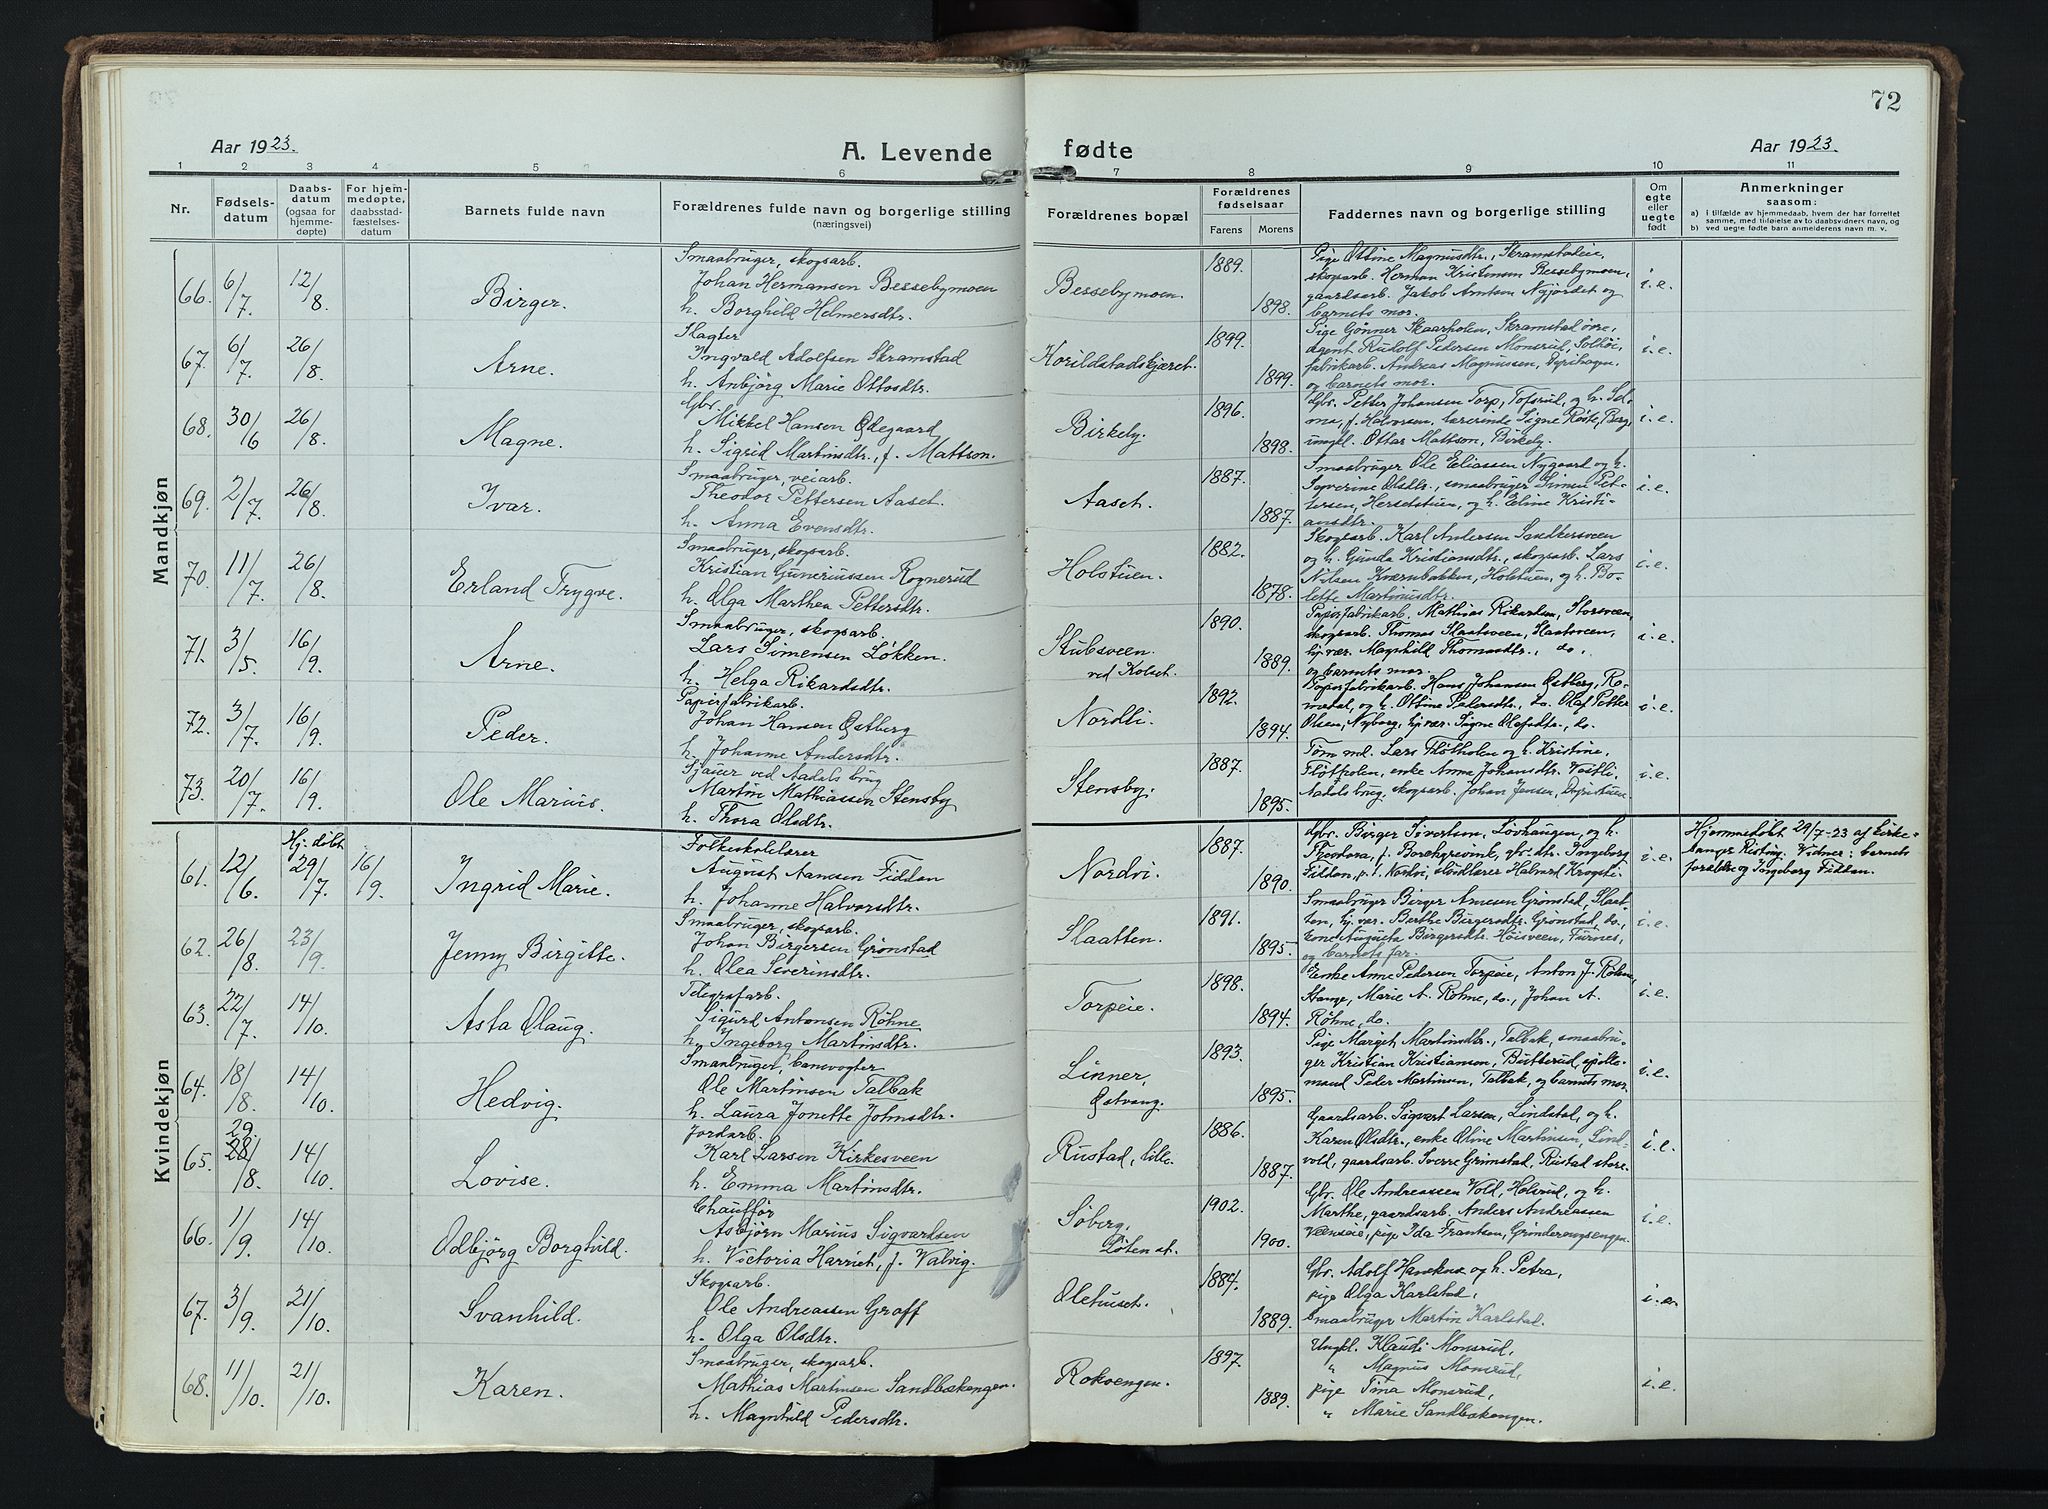 72
Aar 1923.
A. Levende fødte
Aar 1923.
1 2 3 4 5 6 7 8 9 10 11
Nr.
Fødselsdatum
Daabsdatum (ogsaa for hjemmedøpte)
For hjemmedøpte, daabsstadfæstelsesdatum
Barnets fulde navn
Forældrenes fulde navn og borgerlige stilling (næringsvei)
Forældrenes bopæl
Forældrenes fødselsaar
Farens Morens
Faddernes navn og borgerlige stilling
Om egte eller uegte født
Anmerkninger saasom:
a) i tilfælde av hjemmedaab, hvem der har forrettet samme, med tilføielse av to daabsvidners navn, og
b) ved uegte fødte barn anmelderens navn m. v.
Mandkjøn
66. 6/7 12/8 Birger.
Smaabruger, skogsarb.
Johan Hermansen Bessebymoen
h. Borghild Helmersdtr.
Bessebymoen. 1889. 1898.
Pige Ottine Magnusdtr., Skramstadeie,
skogsarb. Herman Kristensen Bessebymoen,
gaardsarb. Jakob Amtsen Nyjordet og
barnets mor.
i.e.
67. 6/7. 26/8. Arne.
Slagter
Ingvald Adolfsen Skramstad
h. Anbjörg Marie Ottosdtr.
Korildstadskjæret. 1899. 1899.
Pige Gönner Skaarholen, Skramstad övre,
agent Rudolf Pedersen Monsrud, Solhöi,
fabrikarb. Andreas Magnussen, Dyrihagen,
og barnets mor.
i.e.
68. 30/6 26/8. Magne.
Gbr.
Mikkel Hansen Ødegaard
h. Sigrid Martinsdtr., f. Mattson.
Birkeby. 1896. 1898.
Gbr. Petter Johansen Torp, Tofsrud, og h. Selma,
f. Halvorsen, lærerinde Signe Röste, Berg,
ungk. Ottar Mattson, Birkeby.
i.e.
69. 2/7. 26/8. Ivar.
Smaabruger, veiarb.
Theodor Pettersen Aaset.
h. Anna Evensdtr.
Aaset. 1887. 1887.
Smaabruger Ole Eliassen Nygaard og h.
Severine Olsdtr., smaabruger Simen Pettersen,
Hersetstuen, og h. Eline Kristiansdtr.
i.e.
70. 11/7. 26/8. Erland Trygve.
Smaabruger, skogsarb.
Kristian Guneriussen Rognerud
h. Olga Marthea Pettersdtr.
Holstuen. 1882. 1878.
Skogsarb. Karl Andersen Sandkersveen
og h. Gunda Kristiansdtr., skogsarb. Lars
Nilsen Kværnbakken, Holstuen, og h. Bolette
Martinusdtr.
i.e.
71. 3/5 16/9. Arne.
Smaabruger, skogsarb.
Lars Simensen Løkken.
h. Helga Rikardsdtr.
Stubsveen ved Kolset. 1890. 1889.
Papirfabrikarb. Mathias Rikardsen, Storsveen,
skogsarb. Thomas Slaatsveen, Slaatsveen,
hj.vær. Magnhild Thomasdtr., do.,
og barnets mor.
i.e.
72. 3/7. 16/9. Peder.
Papirfabrikarb.
Johan Hansen Østberg
h. Johanne Andersdtr.
Nordli. 1892. 1894.
Papirfabrikarb. Hans Johansen Østberg, Romedal,
og h. Ottine Pedersdtr., do. Olaf Petter
Olsen, Nyborg, hj.vær. Signe Olafsdtr., do.
i.e.
73. 20/7. 16/9. Ole Marius.
Sjauer ved Aadals brug
Martin Mathiassen Stensby
h. Thora Olsdtr.
Stensby. 1887. 1895.
Töm.md. Lars Flötholen og h. Kristine,
Flötholen, enke Anna Johansdtr. Vestli,
Aadals brug, skogsarb. Johan Jensen, Dyristuen.
i.e.
Kvindekjøn
61. 12/6 Hj. döbt 29/7 16/9. Ingrid Marie.
Folkeskolelærer
August Aamsen Fiddan
h. Johanne Halvorsdtr.
Nordvi. 1887. 1890.
Gbr. Birger Sivertsen, Lövhaugen, og h.
Theodora, f. Borchgrevink, gbr.dtr. Ingeborg
Fiddan, p.t. Nordvi, slöidlærer Halvard Krogsti.
i.e.
Hjemmedöbt 29/7-23 af kirkesanger
Risting. Vidner: barnets
forældre og Ingeborg Fiddan.
62. 26/8. 23/9. Jenny Birgitte.
Smaabruger, skogsarb.
Johan Birgersen Grönstad
h. Olea Severinsdtr.
Slaatten. 1891. 1895.
Smaabruger Birger Amesen Grönstad, Slaatten,
hj.vær. Berthe Birgersdtr. Grönstad, do.,
Augusta Birgersdtr. Höisveen, Furnes,
og barnets far.
i.e.
63. 22/7. 14/10. Asta Olaug.
Telegrafarb.
Sigurd Antonsen Röhne
h. Ingeborg Martinsdtr.
Torpeie. 1898. 1894.
Enke Anne Pedersen Torpeie, Anton J. Röhne,
Stange, Marie A. Röhne, do., Johan A.
Röhne, do.
i.e.
64. 18/8. 14/10. Hedvig.
Smaabruger, banevogter
Ole Martinsen Talbak
h. Laura Jonette Johnsdtr.
Linner, Østvang. 1893. 1895.
Pige Margit Martinsdtr., Talbak, smaabruger
Kristian Kristiansen, Butterud,
Peder Martinsen, Talbak, og barnets mor.
i.e.
65. 29 28/8. 14/10. Lovise.
Jordarb.
Karl Larsen Kirkesveen
h. Emma Martinsdtr.
Rustad, lille. 1886. 1887.
Gaardsarb. Sigvart Larsen, Lindstad, og h.
Karen Olsdtr., enke Oline Martinsen, Lindvold,
gaardsarb. Sverre Grimstad, Rustad store.
i.e.
66. 11/9. 14/10. Odbjörg Borghild.
Chauffør
Asbjörn Marius Sigvardsen
h. Victoria Harriet, f. Valvig.
Söberg, Løten st. 1902. 1900.
Gbr. Ole Andreassen Vold, Holsrud, og h.
Marthe, gaardsarb. Anders Andreassen
Veenseie, pige Ida Frantsen, Grönderengsengen.
i.e.
67. 3/9. 21/10. Svanhild.
Skogsarb.
Ole Andreassen Groff
h. Olga Olsdtr.
Olehuset. 1884. 1889.
Gbr. Adolf Haneknæ og h. Petra,
pige Olga Karlstad,
Smaabruger Martin Karlstad.
i.e.
68. 11/10. 21/10. Karen.
Smaabruger, skogsarb.
Mathias Martinsen Sandbækengen.
h. Magnhild Pedersdtr.
Rokoengen. 1897. 1889.
Ungkl. Klaudi Monsrud,
" Magnus Monsrud,
pige Tina Monsrud,
" Marie Sandbækengen.
i.e.